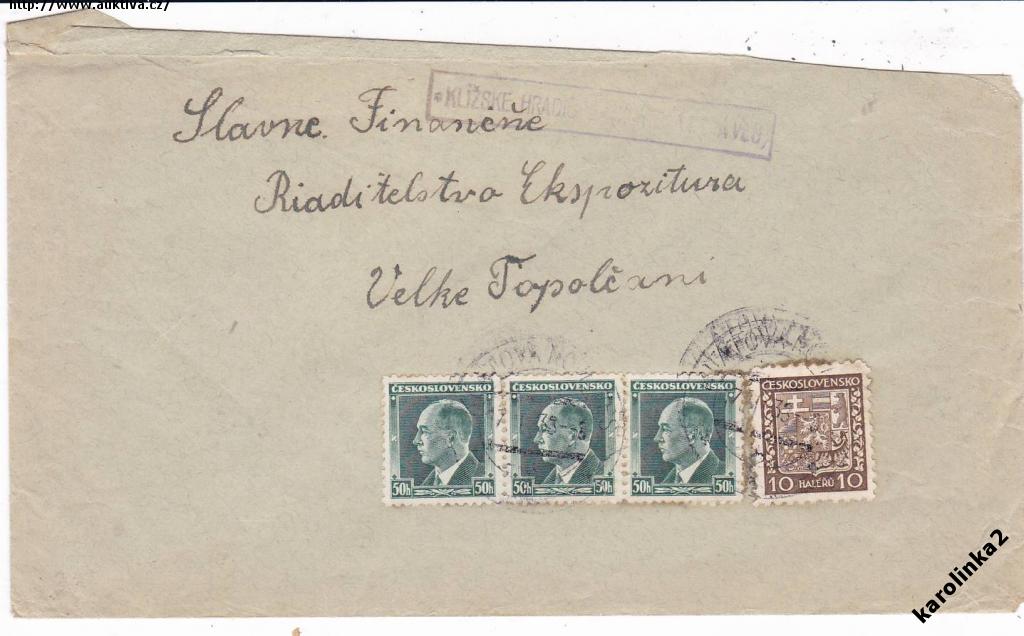 http://www.auktiva.cz/
*KLÍŽSKE HRADI
Slavne. Finančne
Riaditelstvo Ekspozitura
Velke Topolčani
ČESKOSLOVENSKO ČESKOSLOVENSKO ČESKOSLOVENSKO ČESKOSLOVENSKO
50h 50h 50h 50h 50h 50h 10 HALÉŘŮ 10
karolinka2